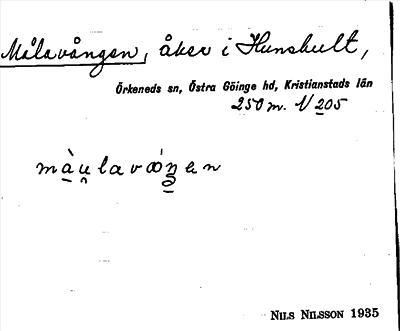 Målavången, åker i Hunshult,
Örkeneds sn, Östra Göinge hd, Kristianstads län
250 m. V 205
NILS NILSSON 1935